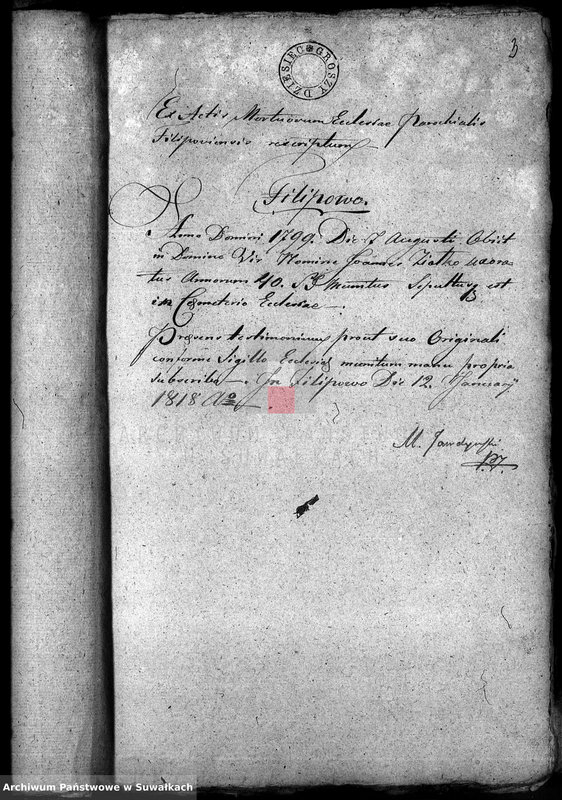 3
DZIESIEC GROSZY
Ex Actis Mortuorum Ecclesiae Parochialis
Filipoviensis rescriptum
Filipowo.
Anno Domini 1799. Die 7 Augusti Obiit
in Domino Vir Nomine Joannes Ziatko uxora-
tus Annorum 40. Munitus Sepultus est
in Cemeterio Ecclesiae.
Praesens testimonium prout suo Originali
conforme Sigillo Ecclesiae munitum manu propria
subscribo. In Filipowo Die 12. Januarij
1818 Ao
M.
Archiwum Państwowe w Suwałkach